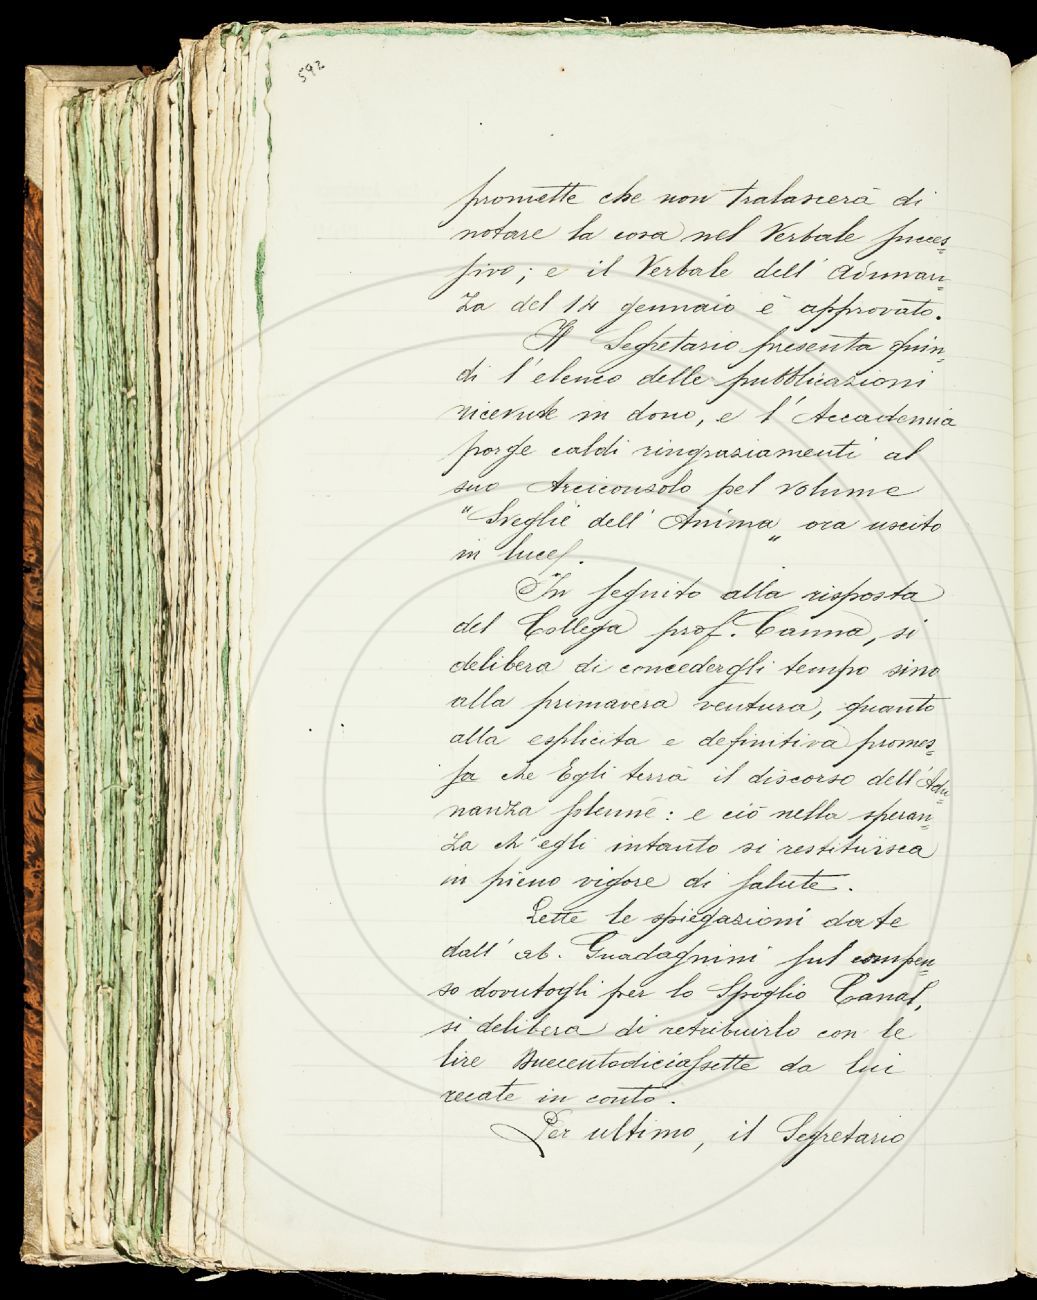 592
promette che non tralascerà di
notare la cosa nel Verbale succes=
sivo; e il Verbale dell' Adunan=
za del 14 gennaio è approvato.
Il Segretario presenta quin=
di l'elenco delle pubblicazioni
ricevute in dono, e l'Accademia
porge caldi ringraziamenti al
suo Arciconsolo pel volume
"Sveglie dell' Anima" ora uscito
in luce.
In seguito alla risposta
del Collega prof. Canna, si
delibera di concedergli tempo sino
alla primavera ventura, quanto
alla esplicita e definitiva promes=
sa che Egli terrà il discorso dell'Adu=
nanza solenne: e ciò nella speran=
za ch'egli intanto si restituisca
in pieno vigore di salute.
Lette le spiegazioni date
dall' ab. Guadagnini sul compen=
so dovutogli per lo Spoglio Canal,
si delibera di retribuirlo con le
lire duecentodiciassette da lui
recate in conto.
Per ultimo, il Segretario